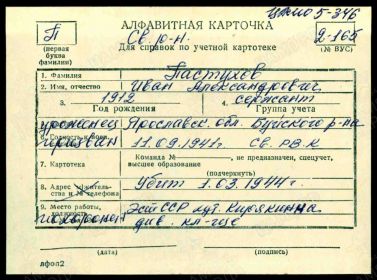 5-346
АЛФАВИТНАЯ КАРТОЧКА
П
Св. р-н.
2-165
(первая буква фамилии)
Для справок по учетной картотеке
(№ ВУС)
1. Фамилия Пастухов
2. Имя, отчество Иван Александрович
3. 1912 4. сержант
Год рождения Группа учета
уроженец Ярославск. обл. Буйского р-на
призван 11.09.1941г. Св. РВК
7. Картотека
Команда № , не предназначен, спецучет, высшее образование
(подчеркнуть)
8. Адрес жительства и № телефона Убит 1.03.1944г.
9. Место работы, должность
похоронен ЭстССР хут. Кирякина
див. кл-ще
(дата) (подпись)
лфоп2